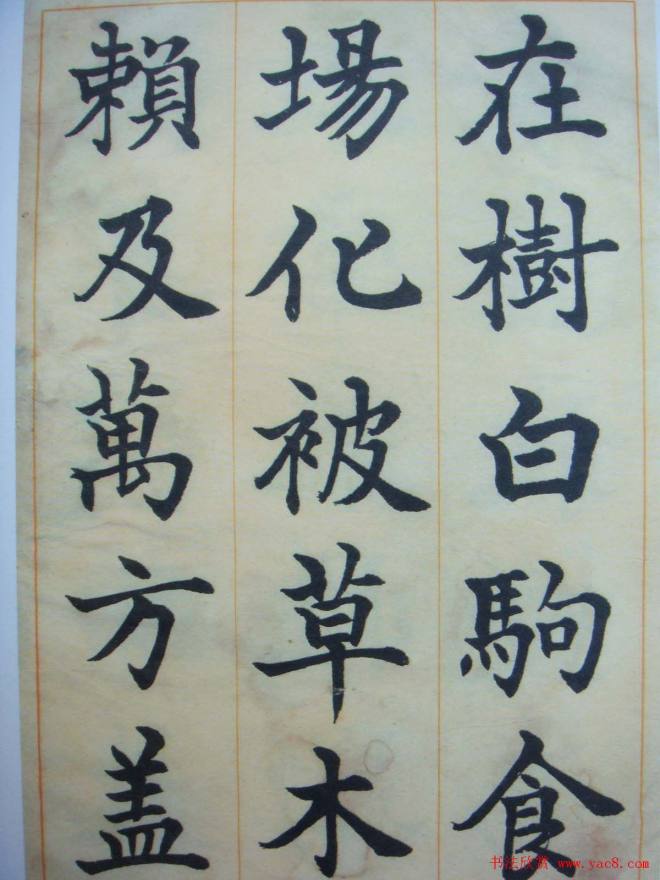 在樹白駒食
場化被草木
賴及萬方盖
书法欣赏 www.yac8.com